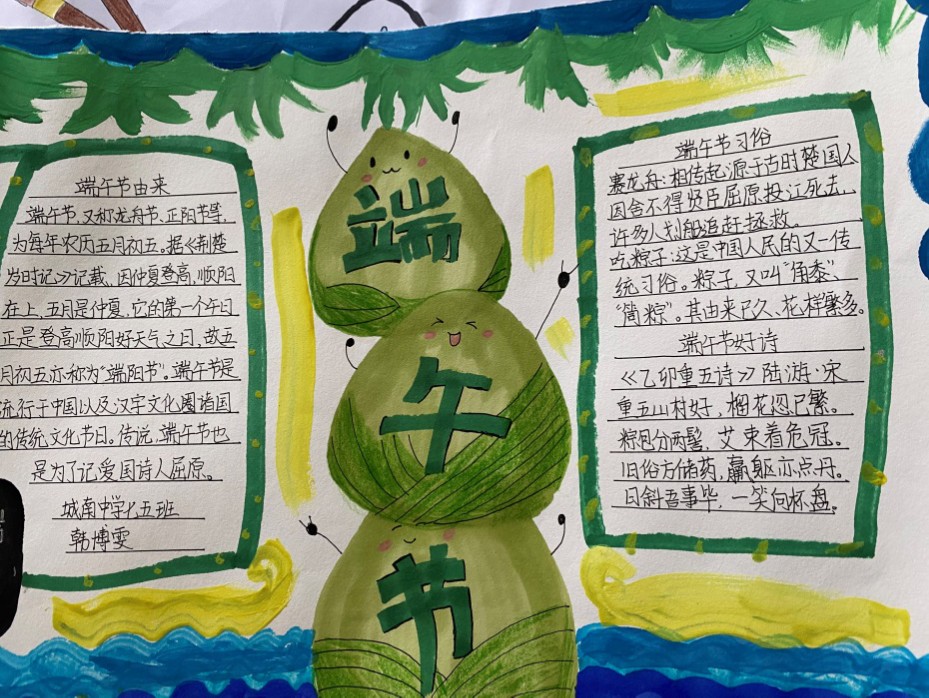 端午节由来
端午节,又称龙舟节、正阳节等,
为每年农历五月初五。据《荆楚
岁时记》记载,因仲夏登高,顺阳
在上,五月是仲夏,它的第一个午日
正是登高顺阳好天气之日,故五
月初五亦称为“端阳节”。端午节是
流行于中国以及汉字文化圈诸国
的传统文化节日。传说,端午节也
是为了记爱国诗人屈原。
城南中学七五班
韩博雯
端
午
节
端午节习俗
赛龙舟:相传起源于古时楚国人
因舍不得贤臣屈原投江死去,
许多人划船追赶拯救。
吃粽子:这是中国人民的又一传
统习俗。粽子,又叫“角黍”、
“筒粽”。其由来已久、花样繁多。
端午节好诗
《乙卯重五诗》陆游·宋
重五山村好,榴花忽已繁。
粽包分两髻,艾束着危冠。
旧俗方储药,羸躯亦点丹。
日斜吾事毕,一笑向杯盘。